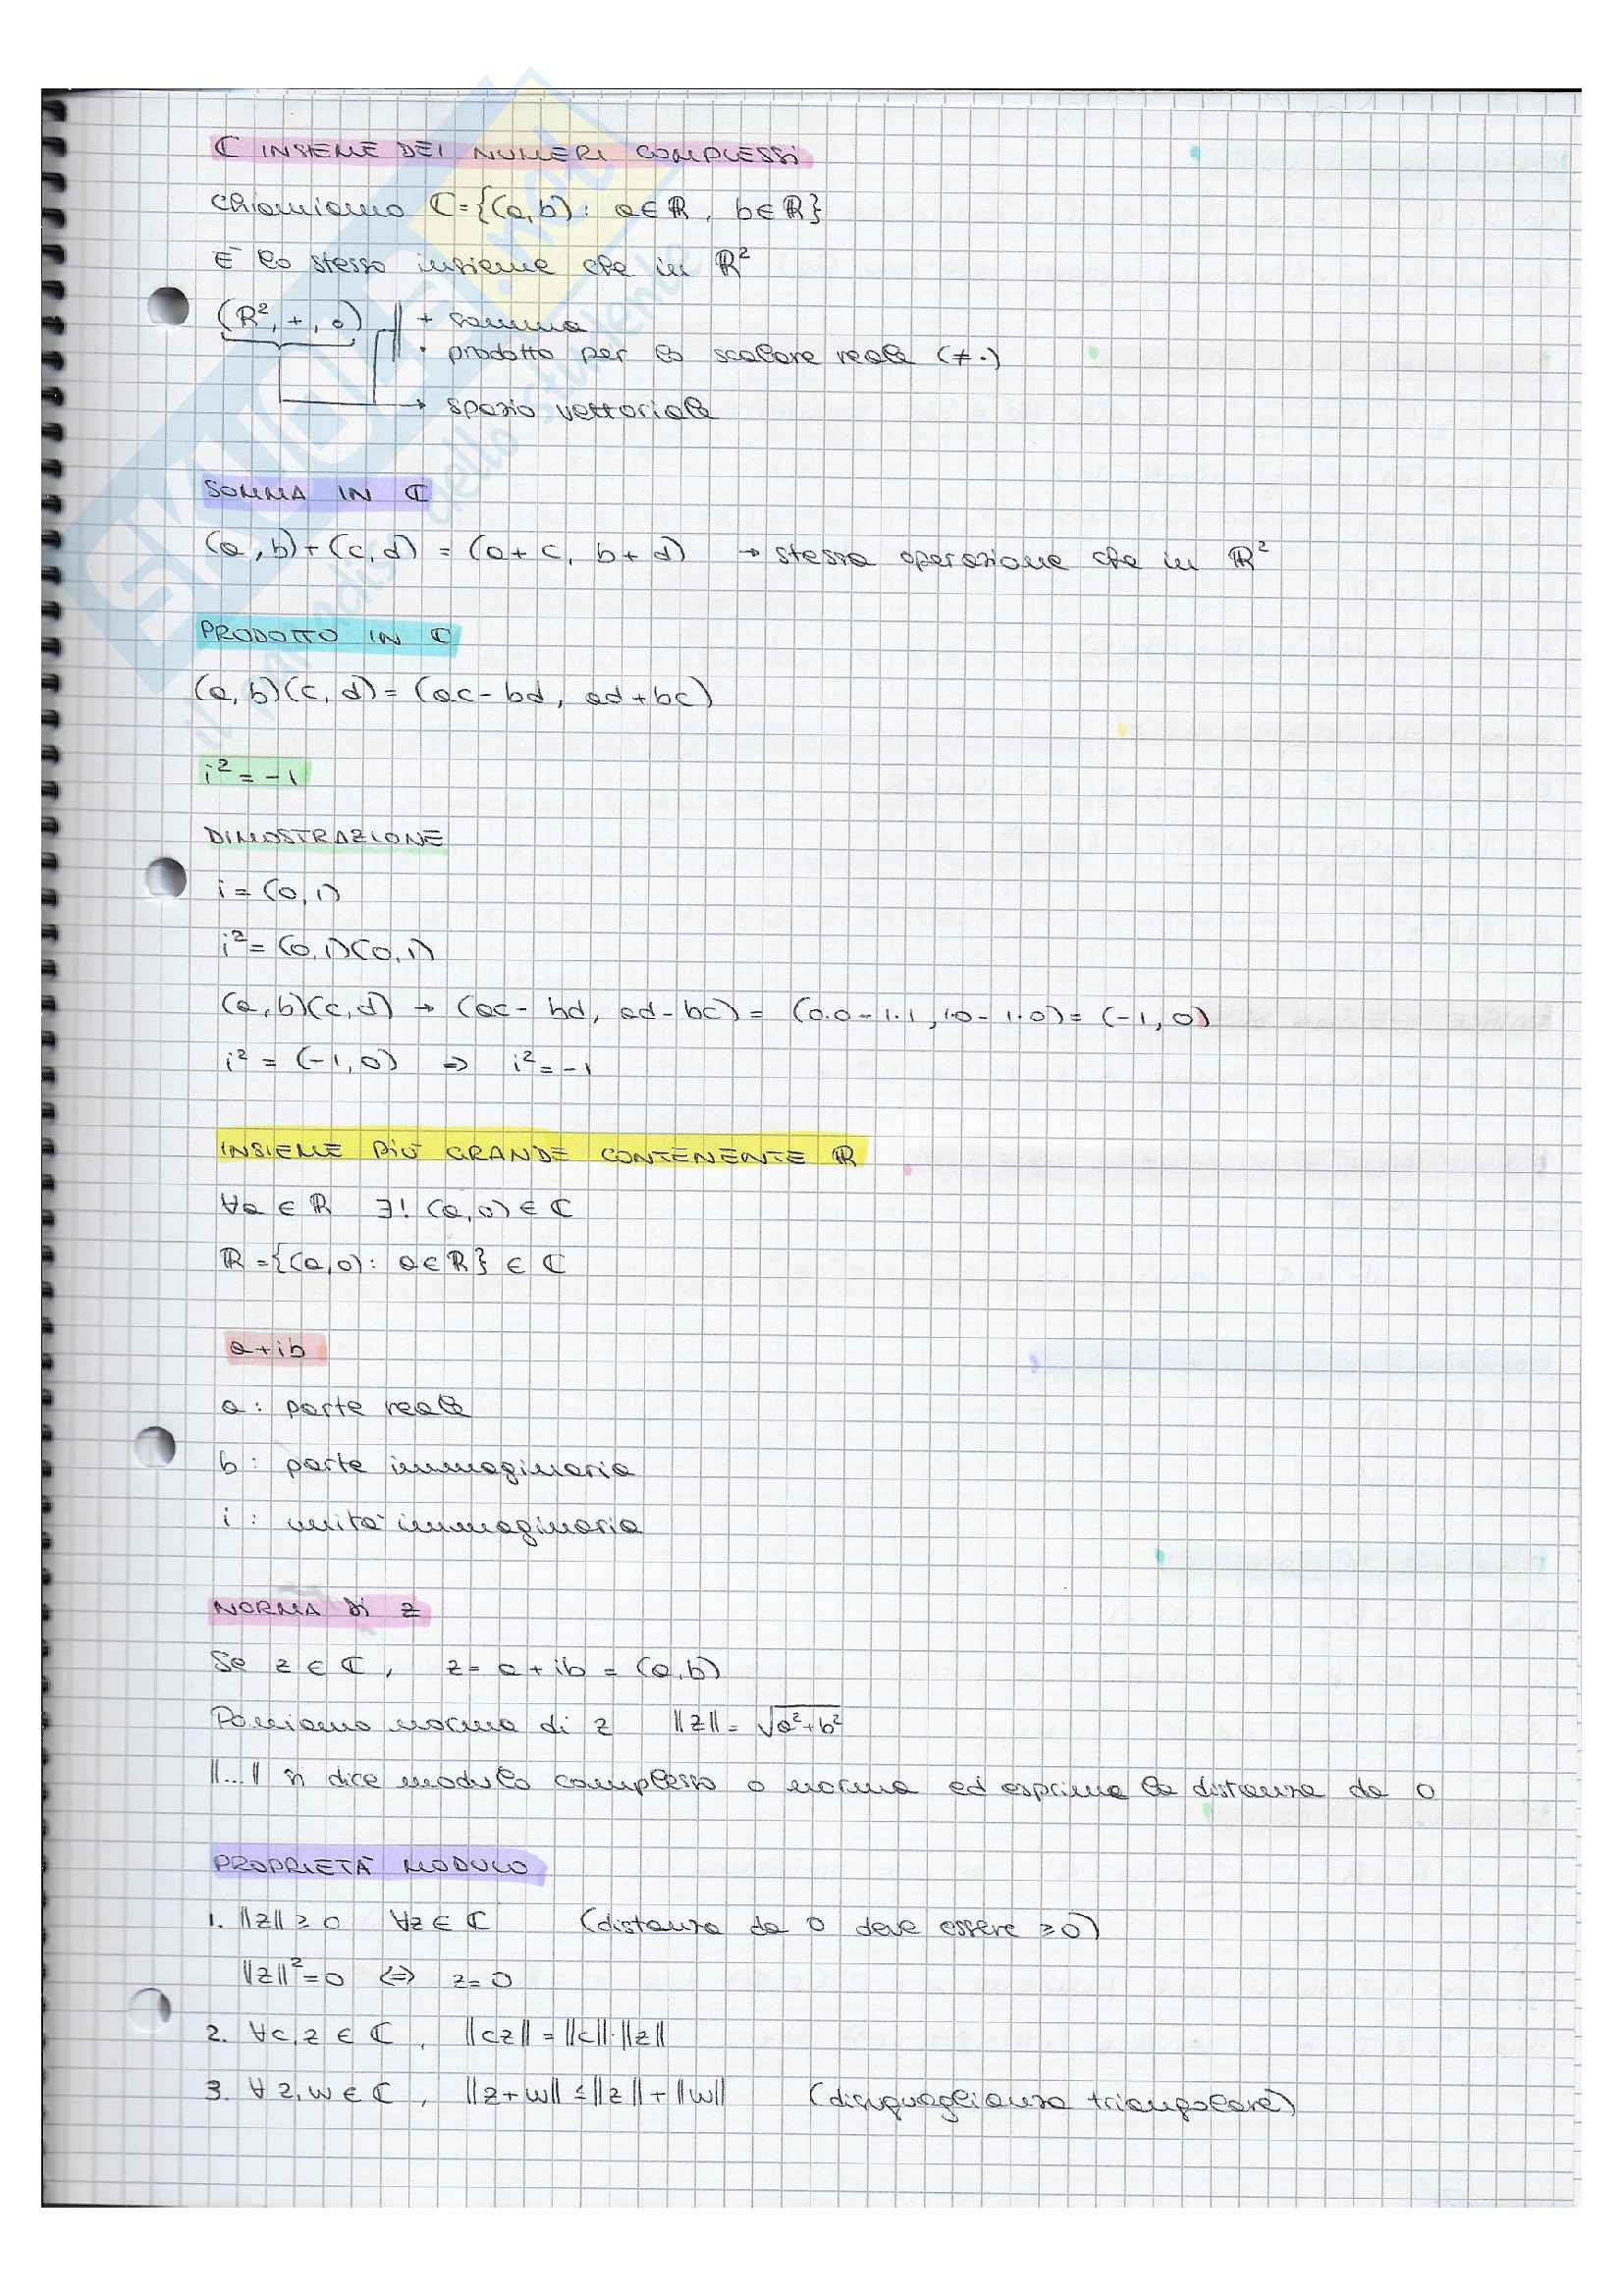 ℂ INSIEME DEI NUMERI COMPLESSI
Chiamiamo ℂ={(a,b): a∈ℝ, b∈ℝ}
È lo stesso insieme che in ℝ²
(ℝ², +, ∘) + somma
• prodotto per lo scalare reale (≠·)
→ spazio vettoriale
SOMMA IN ℂ
(a,b)+(c,d) = (a+c, b+d) → stessa operazione che in ℝ²
PRODOTTO IN ℂ
(a,b)(c,d) = (ac-bd, ad+bc)
i² = -1
DIMOSTRAZIONE
i = (0,1)
i² = (0,1)(0,1)
(a,b)(c,d) → (ac-bd, ad-bc) = (0·0-1·1, 1·0-1·0) = (-1,0)
i² = (-1,0) ⇒ i² = -1
INSIEME PIÙ GRANDE CONTENENTE ℝ
∀a ∈ ℝ ∃! (a,0) ∈ ℂ
ℝ = {(a,0): a∈ℝ} ∈ ℂ
a+ib
a: parte reale
b: parte immaginaria
i: unità immaginaria
NORMA DI Z
Se z ∈ ℂ, z = a+ib = (a,b)
Poniamo norma di z ||z|| = √a²+b²
||...|| si dice modulo complesso o norma ed esprime la distanza da 0
PROPRIETÀ MODULO
1. ||z|| ≥ 0 ∀z ∈ ℂ (distanza da 0 deve essere ≥0)
||z||² = 0 ⇔ z = 0
2. ∀c,z ∈ ℂ, ||cz|| = ||c||·||z||
3. ∀z,w ∈ ℂ, ||z+w|| ≤ ||z|| + ||w|| (disuguaglianza triangolare)